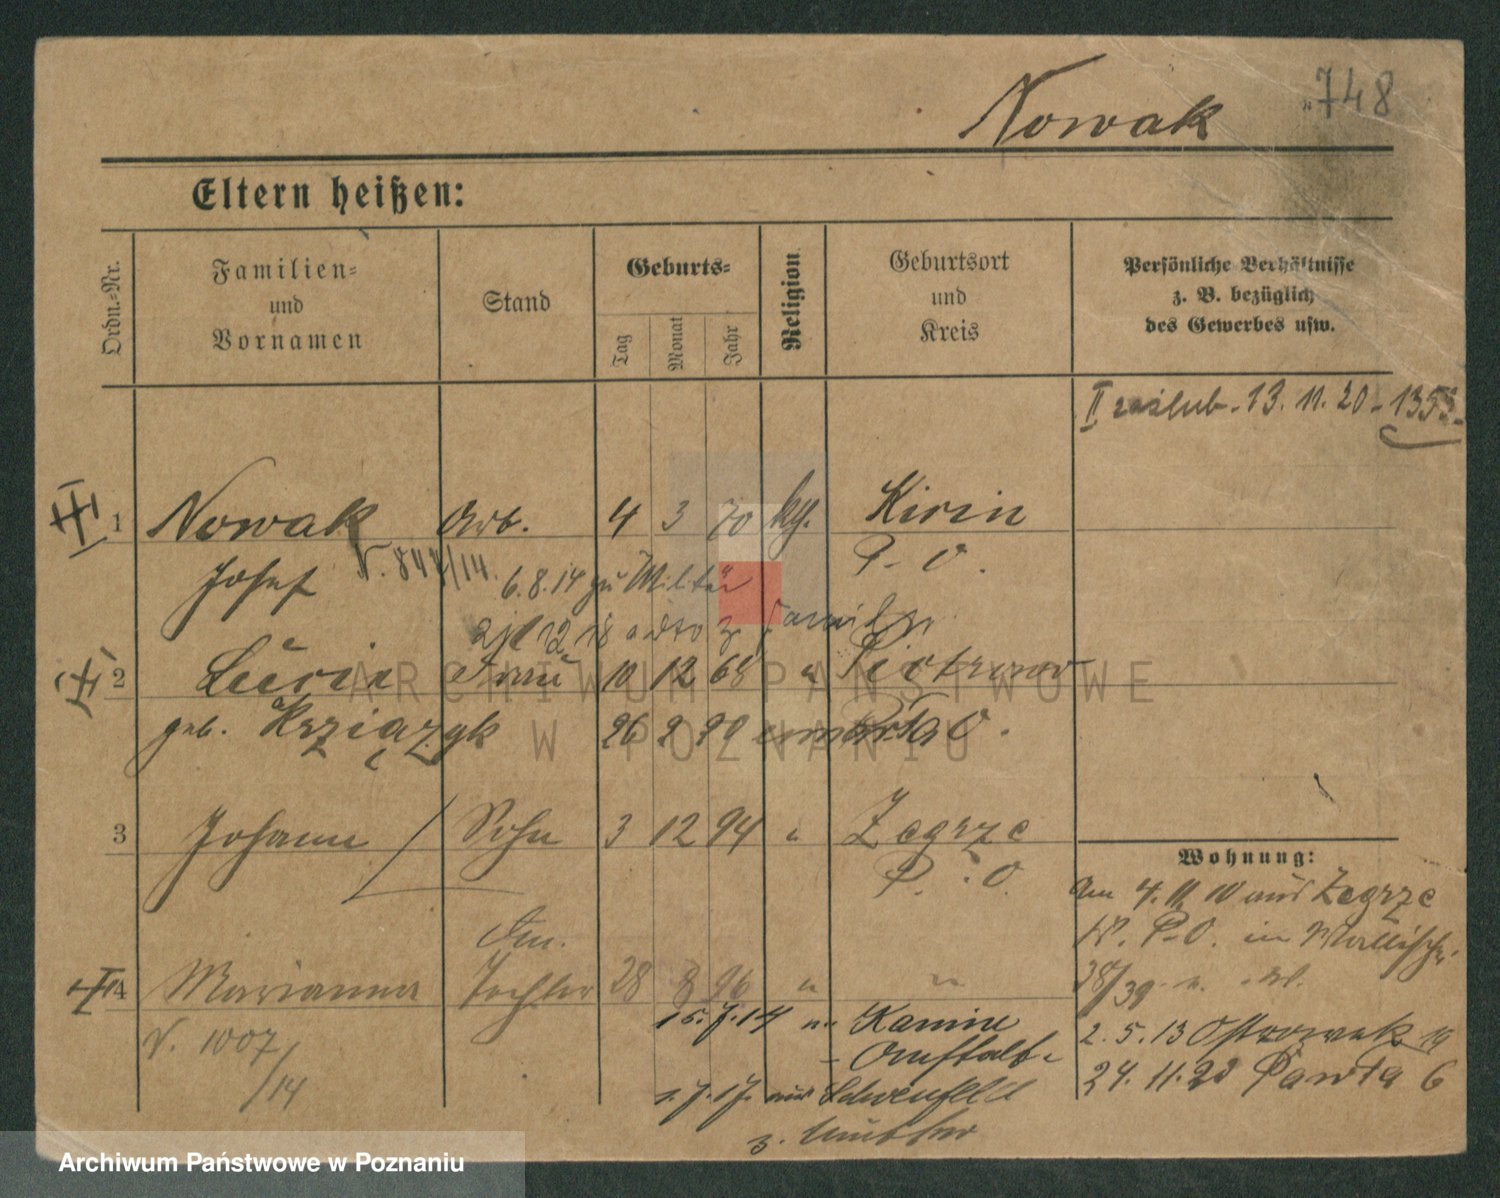 748
Nowak
Eltern heißen:
Ordn.-Nr.
Familien-
und
Vornamen
Stand
Geburts-
Tag
Monat
Jahr
Religion
Geburtsort
und
Kreis
Persönliche Verhältnisse
z. B. bezüglich
des Gewerbes usw.
II zaślub. 13. 11. 20 - 1353
1 Nowak Arb. 4 3 70 kth. Kirin
Josef N. 844/14. P. O.
6.8.14 zu Militär
12 18 Familie
2 Lucie Frau 10 12 68 " Piotrowo
geb. Krziązyk 26 2 20 P. O.
3 Johann Sohn 3 12 94 " Zegrze
P. O.
4 Marianna Tochter 28 8 96 " "
N. 1007/14
15.7.14 n. Kanine
1.7.17. aus
z. Mutter
Wohnung:
Am 4. 11. 10 aus Zegrze
Kr. P.O. in Wallisch.
38/39
2. 5. 13 Ostrowek 19
24. 11. 20 Pawła 6
ARCHIWUM PAŃSTWOWE
W POZNANIU
Archiwum Państwowe w Poznaniu